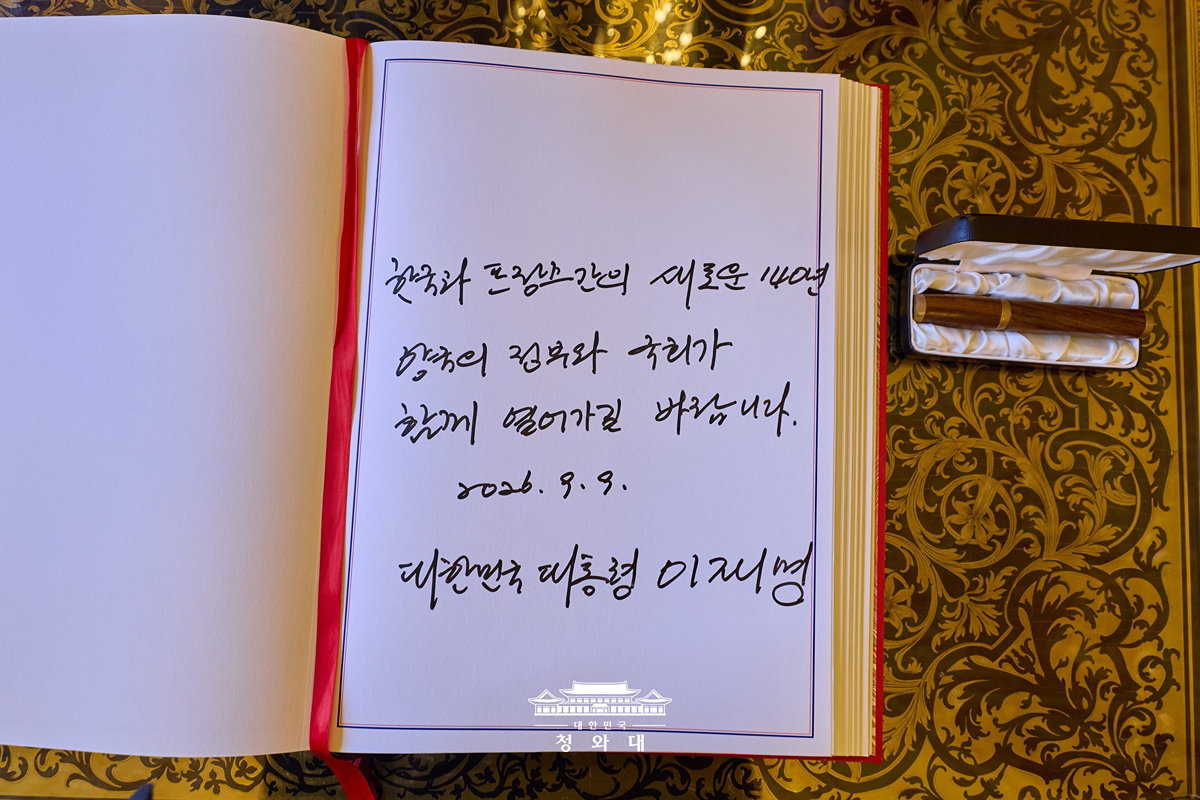 한국과 프랑스간의 새로운 140년
양국의 정부와 국회가
함께 열어가길 바랍니다.
2026. 9. 9.
대한민국 대통령 이재명
대한민국
청와대